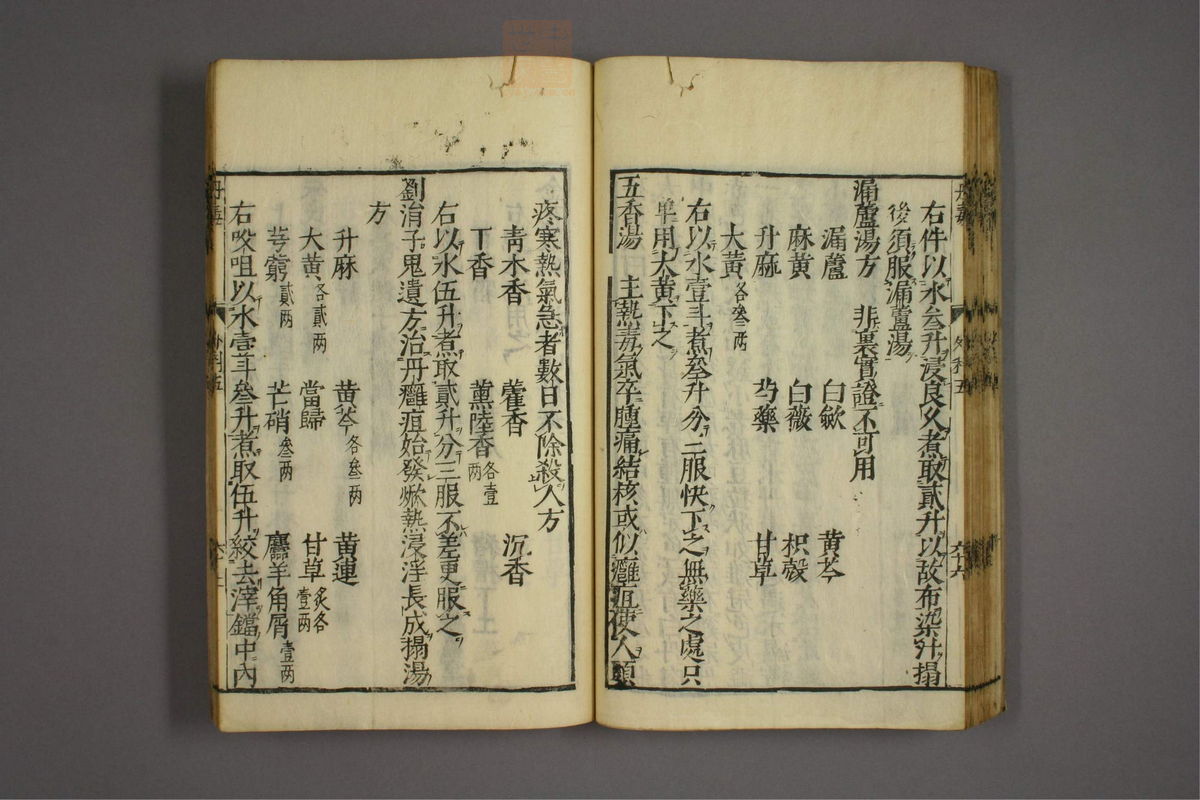 右件以水叁升浸良久煮取貳升以故布染汁搨
後須服漏蘆湯
漏蘆湯方　非裏實證不可用
漏蘆　白斂　黄芩
麻黄　白薇　枳殼
升麻　芍藥　甘草
大黄各叁两
右以水壹斗煮叁升分三服快下之無藥之處只
單用大黄下之
五香湯　主熱毒氣卒腫痛結核或似癰疽使人頭
疼寒熱氣急者數日不除殺人方
青木香　藿香　沉香
丁香　薰陸香各壹两
右以水伍升煮取貳升分三服不差更服之
劉涓子鬼遺方治丹癰疽始發焮熱浸淫長成搨湯
方
升麻　黄芩各叁两　黄連
大黄各貳两　當歸　甘草炙各壹两
芎藭貳两　芒硝叁两　麢羊角屑壹两
右㕮咀以水壹斗叁升煮取伍升絞去滓鐺中内